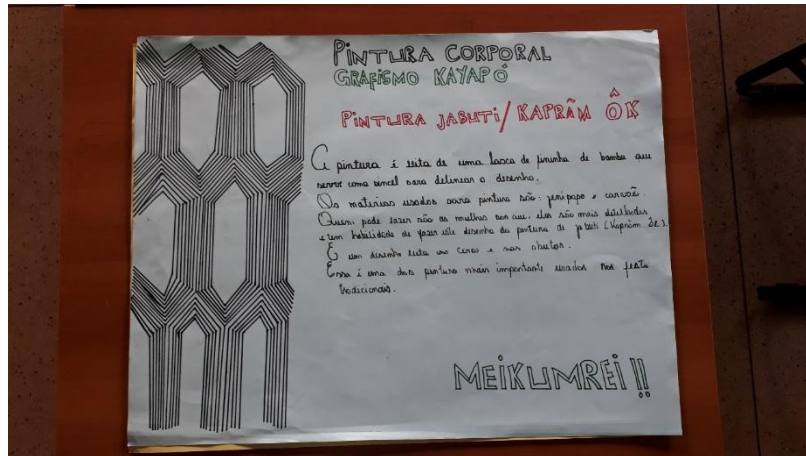 PINTURA CORPORAL
GRAFISMO KAYAPÓ
PINTURA JABUTI/ KAPRÃM ÔK
A pintura é feita de uma lasca de fininha de bambu que
servir como pincel para delinear o desenho.
Os materias usados para pintura são: jenipapo e carvão.
Quem pode fazer não as mulhes por que, elas são mais detalhadas
e tem habilidade de fazer este desenho da pintura de jabuti (Kaprãm Ôk).
É um desenho feito no corpo e nas
Essa é uma das pintura mais importante usados nas festa
tradicionais.
MEIKUMREI!!